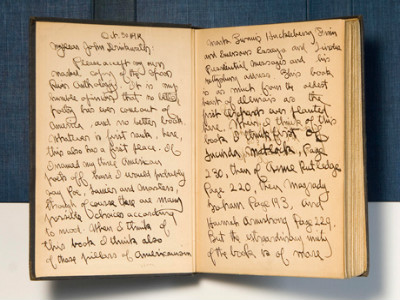 Oct. 30 1918
My dear John Drinkwater:
Please accept my own
marked copy of the Spoon
River Anthology. It is my
humble opinion that no better
poetry has ever come out of
America and no better book.
Whitman is first rank, here,
this also has a first place. If
I named my three American
poets off hand I would probably
say Poe, Lanier and Masters,
though of course there are many
possible choices according
to mood. When I think of
this book I think also
of those pillars of Americanism
Mark Twain's Huckleberry Finn
and Emerson's Essays and Lincoln's
Presidential messages and his
Gettysburg address. This book
is as much from the oldest
heart of Illinois as the
first orchards ever planted
here. When I think of this
book I think first of
Lucinda Matlock, Page
230, then of Anne Rutledge
Page 220, then
Graham Page 193, and
Hannah Armstrong Page 229.
But the extraordinary unity
of the book is of more